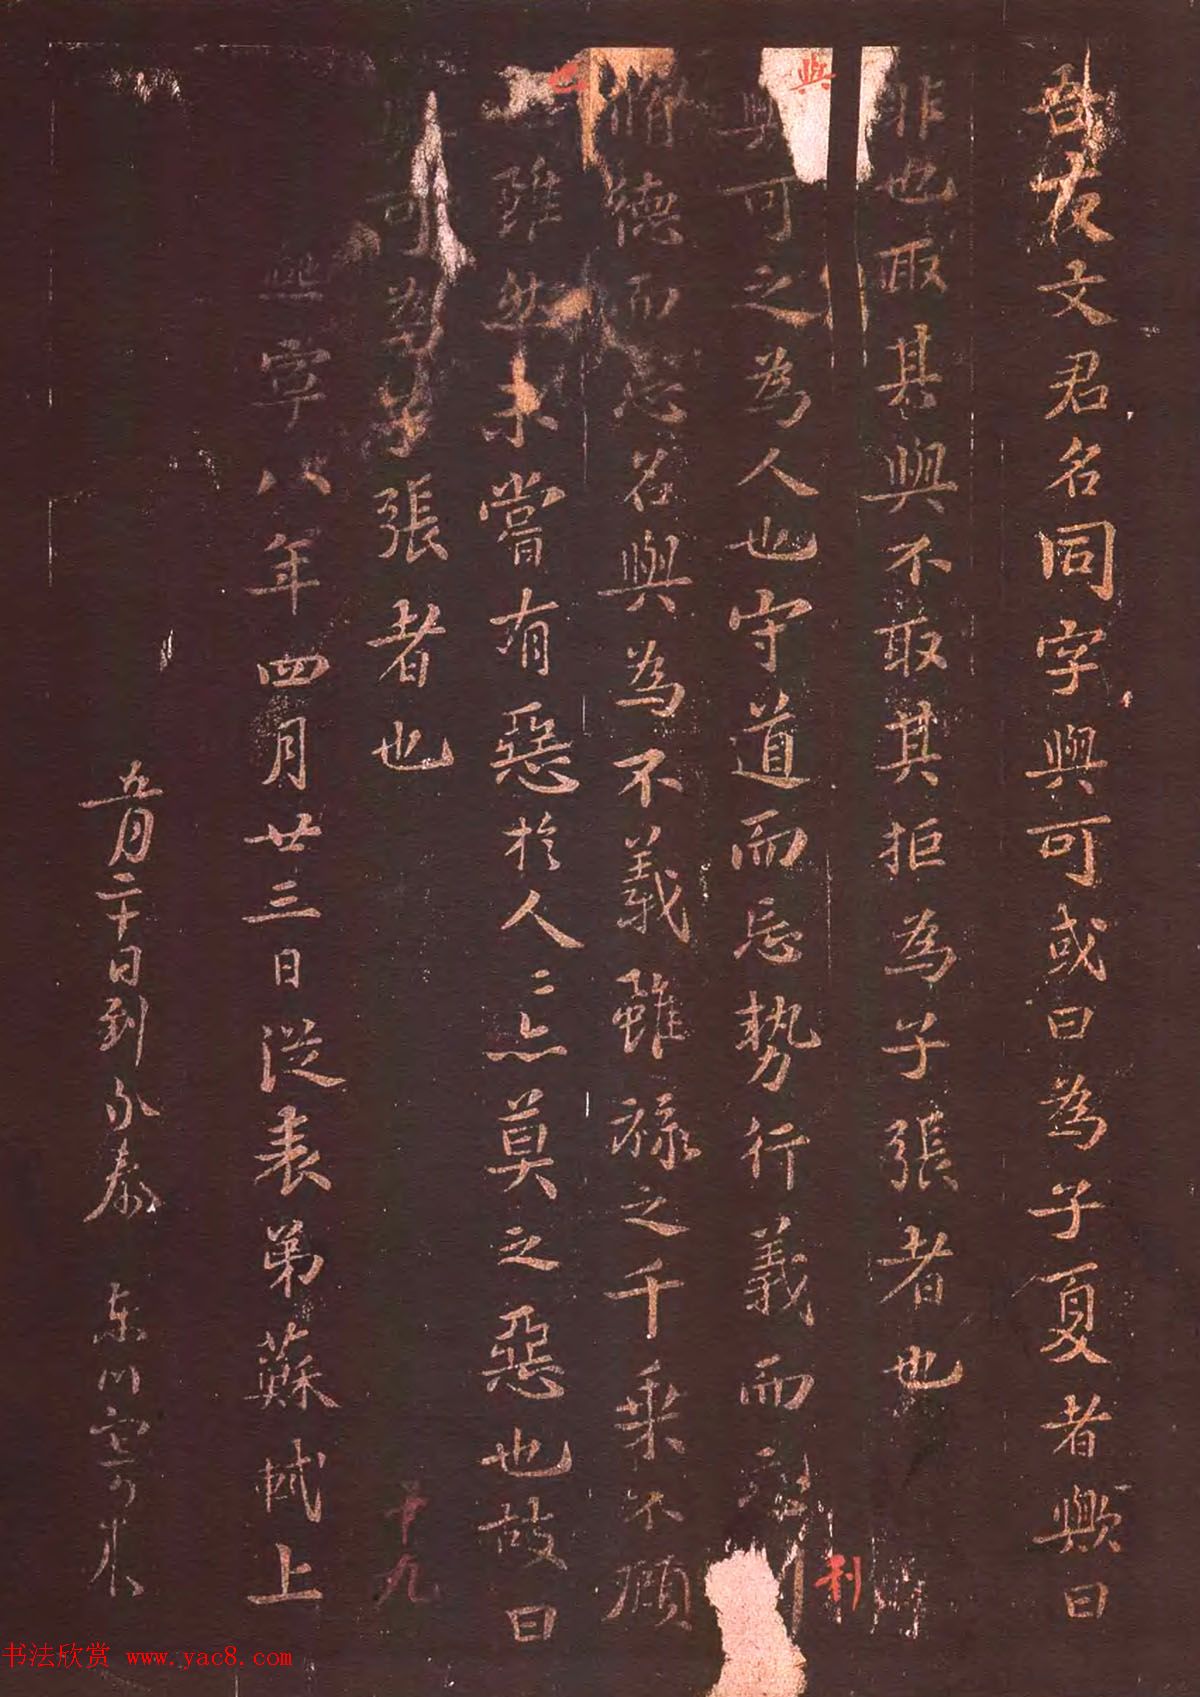 吾友文君名同字與可或曰為子夏者歟曰
非也取其與不取其拒為子張者也
與
與可之為人也守道而忘勢行義而忘
利
脩德而忘名與為不義雖祿之千乘不顧
也雖然未嘗有惡於人二亦莫之惡也故曰
與可為子張者也
十九
熙寧八年四月廿三日從表弟蘇軾上
五月二十日到永泰
书法欣赏 www.yac8.com